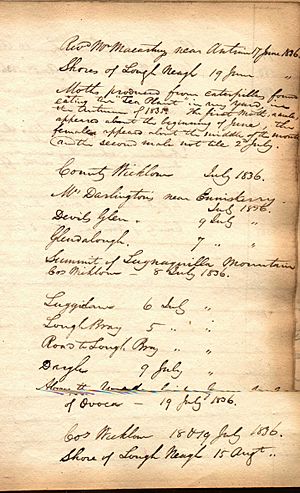 Revd Mr Macartny near Antrim 17 June 1836.
Shores of Lough Neagh 19 June "
Moths produced from caterpillars found
eating the "Tea Plant" in my yard, in
the Autumn of 1835. The first Moth, a male,
appeared about the beginning of June. The
females appeared about the middle of the month
and the second male not till 2d July.
County Wicklow July 1836.
Mr Darlington near Enniskerry
July 1836.
Devils Glen. 9 July "
Glendalough. 7 " "
Summit of Lugnaquilla Mountain
Cos Wicklow – 8 July 1836.
Luggielaw 6 July "
Lough Bray 5 " "
Road to Lough Bray " "
Dargle 9 July "
of Ovoca – 19 July 1836.
Cos Wicklow 18 & 19 July 1836.
Shore of Lough Neagh 15 Augt. "